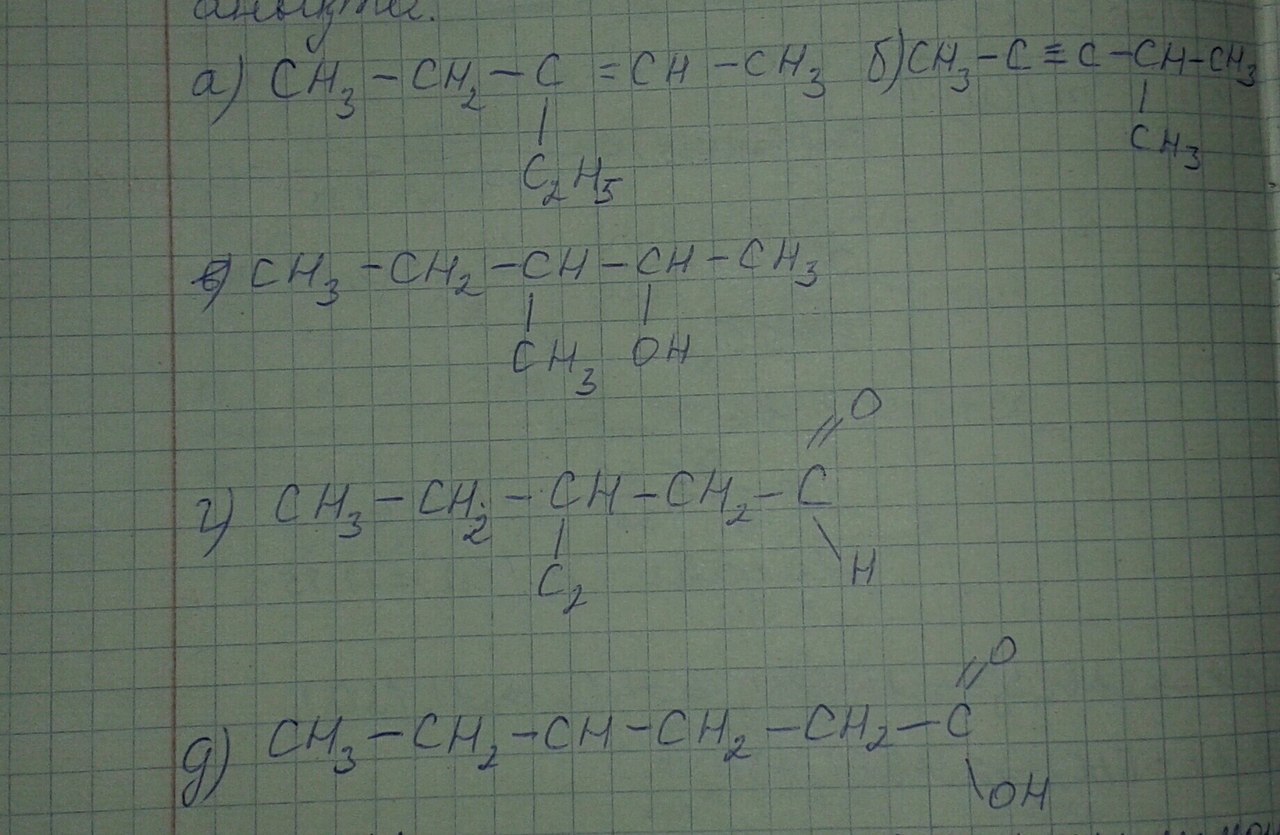 а) CH₃ – CH₂ – C = CH – CH₃ б) CH₃ – C ≡ C – CH – CH₃
|
C₂H₅
|
CH₃
в) CH₃ – CH₂ – CH – CH – CH₃
| |
CH₃ OH
O
//
г) CH₃ – CH₂ – CH – CH₂ – C
| \
C₂ H
O
//
д) CH₃ – CH₂ – CH – CH₂ – CH₂ – C
\
OH